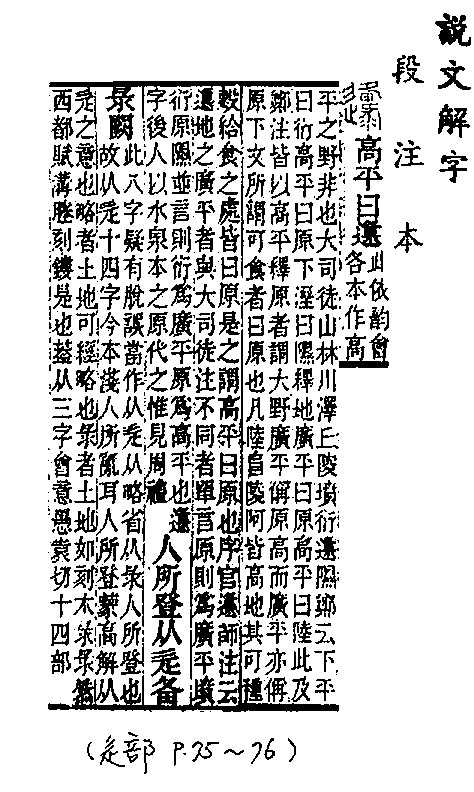 說文解字
段注本
邍 高平曰邍 此依韵會
各本作高
平之野非也大司徒山林川澤丘陵墳衍邍隰鄭云下平
曰衍高平曰原下溼曰隰釋地廣平曰原高平曰陸此及
鄭注皆以高平釋原者謂大野廣平偁原高而廣平亦偁
原下文所謂可食者曰原也凡陸𨸏陵阿皆高地其可種
穀給食之處皆曰原是之謂高平曰原也序官邍師注云
邍地之廣平者與大司徒注不同者單言原則爲廣平墳
衍原隰並言則衍爲廣平原爲高平也邍
字後人以水泉本之原代之惟見周禮
人所登从辵备
彔闕
此八字疑有脫誤當作从辵从略省从彔人所登也
故从辵十四字今本淺人所亂耳人所登蒙高解从
辵之意也略者土地可經略也彔者土地如刻木彔彔然
西都賦溝塍刻鏤是也葢从三字會意愚袁切十四部
(辵部 P.75~76)